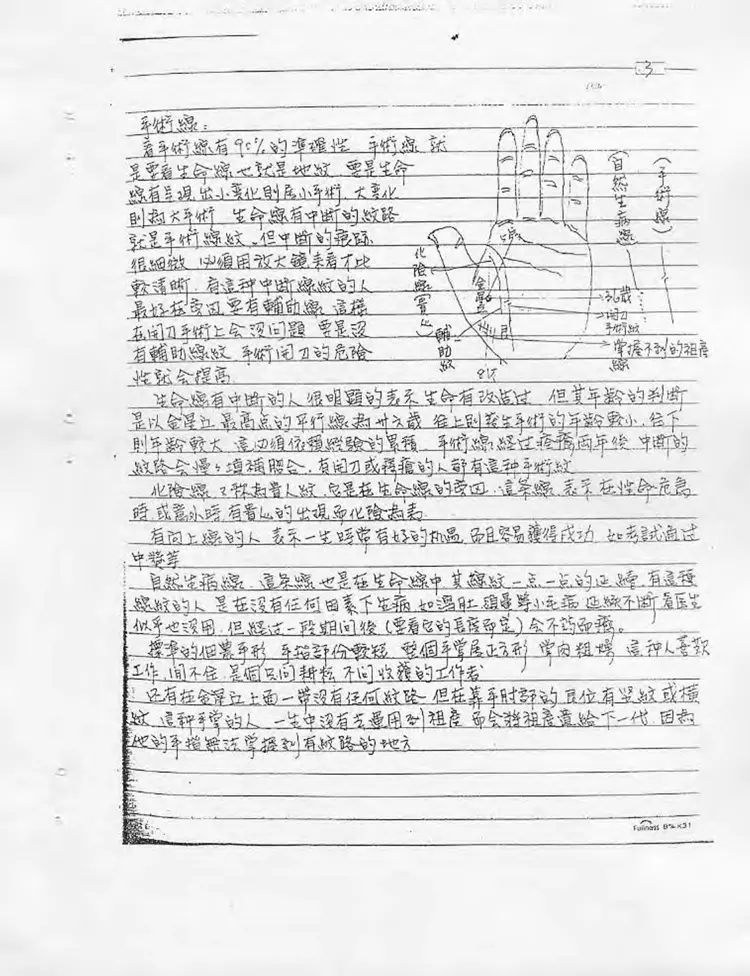 3
手術線：
看手術線有90%的準確性 手術線 就
是要看生命線也就是地紋 要是生命
線有呈現出小變化則屬小手術 大變化
則為大手術 生命線有中斷的紋路
就是手術線紋，但中斷的痕跡
很細微 必須用放大鏡來看才比
較清晰，有這种中斷線紋的人
最好在旁因要有輔助線 這樣
在開刀手術上會沒問題 要是沒
有輔助線紋 手術開刀的危險
性就會提高
(手術線)
(自然生病線
化險線(貴人)
輔助紋
36歲
開刀手術紋
掌握不到的祖產線
生命線有中斷的人 很明顯的表示生命有改造过 但其年齡的判斷
是以金星丘最高点的平行線為卅六歲 往上則發生手術的年齡較小，往下
則年齡較大 這必須依賴經驗的累積，手術線經过痊癒兩年後 中斷的
紋路会慢々填補膠合，有開刀或積瘡的人都有這种手術紋
化險線 又称為貴人紋，它是在生命線的旁因，這条線 表示在性命危急
時 或意外時有貴人的出現而化險為夷
有向上線的人 表示一生時常有好的机遇 而且容易獲得成功 如考試通过
中獎等
自然生病線 這条線也是在生命線中 其線紋一点一点的延續 有這種
線紋的人 是在沒有任何因素下生病 如瀉肚 頭暈等小毛病 延線不斷看医生
似乎也沒用 但經过一段期间後(要看它的長度而定)会不药而癒。
標準的但累手形 手指部份較短 整個手掌屬正方形 掌肉粗燥 這种人喜歡
工作 闲不住 是個只问耕耘 不问收穫的工作者
还有在金星丘上面一帶沒有任何紋路 但在靠手肘部的 艮位有竖紋或橫
紋 這种手掌的人 一生中沒有去運用到祖產 而会將祖產遺給下一代 因為
他的手指無法掌握到有紋路的地方
Fullness B5 K31